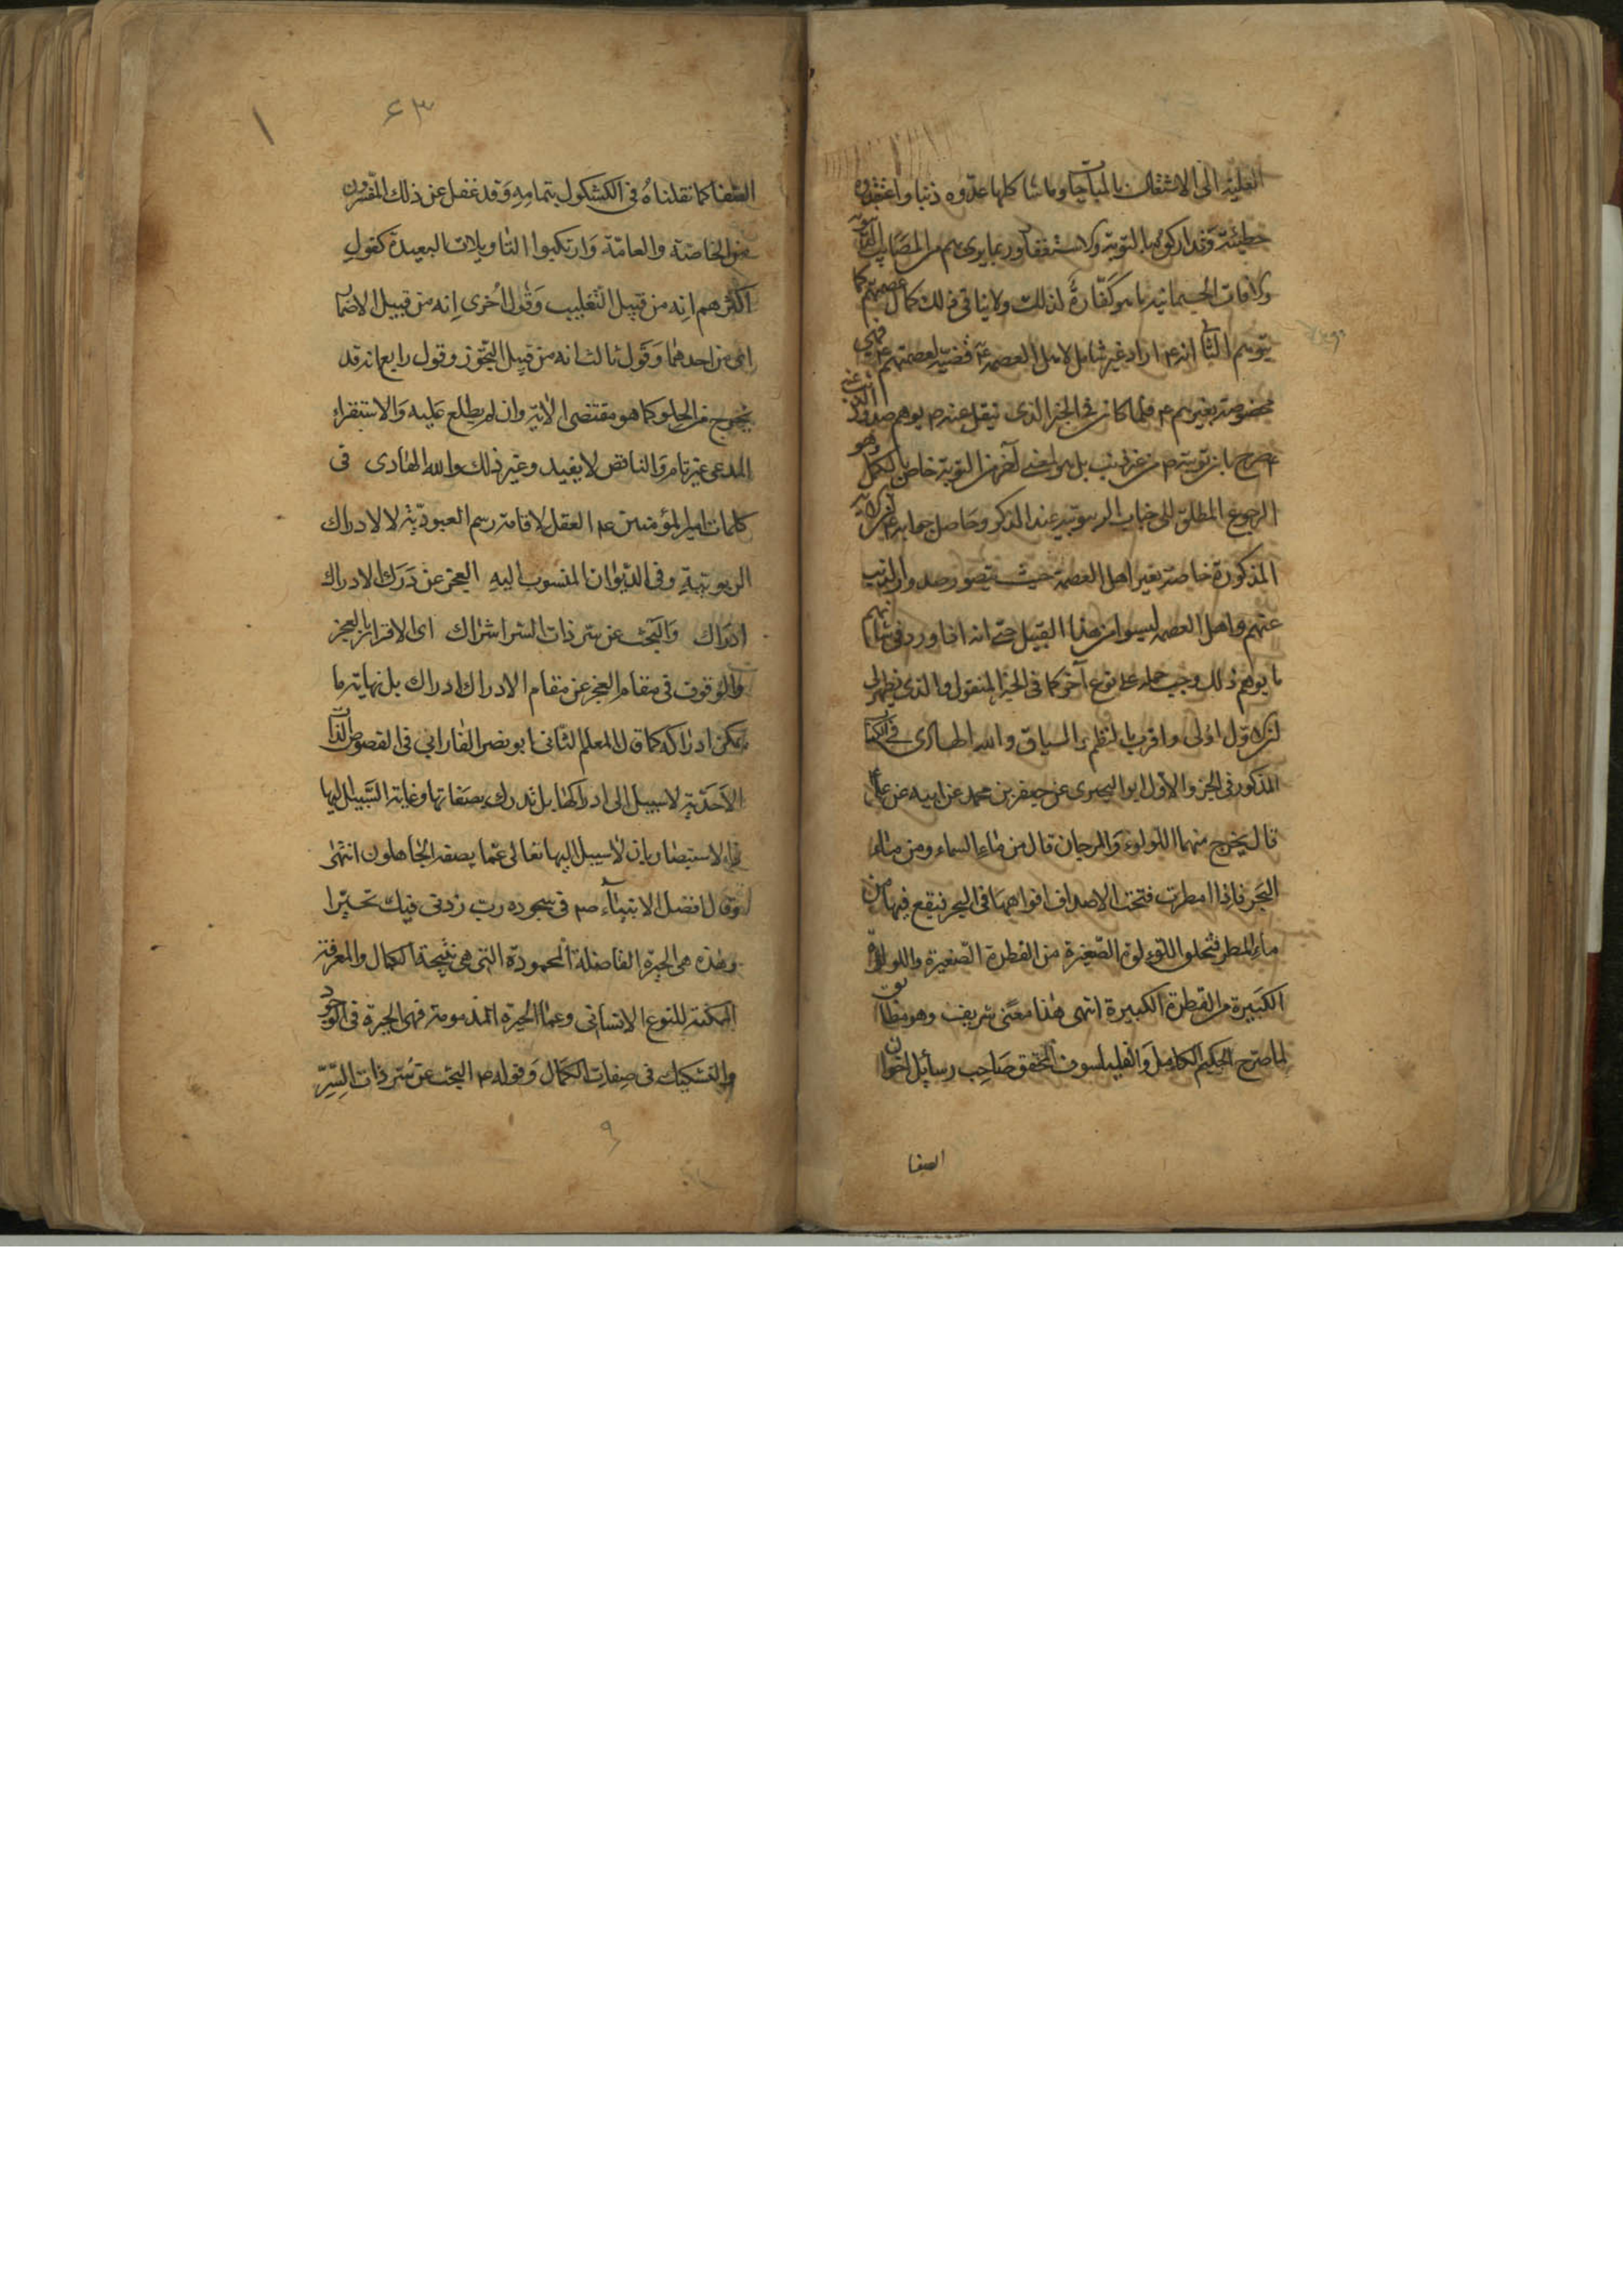 العلية الى الاشتغال بالمباحات وما شاكلها عدّوه ذنبا واعتقدوه
خطيئة وتداركوه بالتوبة والاستغفار وربما يرى بهم من المصايب
والافات الجسمانية ما هو كفّارة لذلك ولا ينافي ذلك كمال عصمتهم كما
يتوهم انه اراد غير شامل لاهل العصمة قضية لعصمتهم فهي
مخصوصة بغيرهم فلما كان في الخبر الذي نقل عنه يوهم صدور الذنب عنه
صرح بان توبته من غير ذنب بل هو لمعنى آخر من التوبة خاص بالكمل وهو
الرجوع المطلق الى جناب الربوبية عند الذكر وحاصل جوابه ان الاية
المذكورة خاصة بغير اهل العصمة حيث يتصور صدور الذنب
عنهم واهل العصمة ليسوا من هذا القبيل حتى انه اذا ورد في شانهم
ما يوهم ذلك وجب حمله على نوع آخر كما في الخبر المنقول والذي يظهر لي
ان الاول اولى واقرب بالنظم والسياق والله الهادى في الكتاب
المذكور في الجزء الاول ابو البحترى عن جعفر بن محمد عن ابيه عن علي
قال يخرج منهما اللولوء والمرجان قال من ماء السماء ومن ماء
البحر فاذا امطرت فتحت الاصداف افواهها في البحر فيقع فيها من
ماء المطر فتخلق اللؤلوة الصّغيرة من القطرة الصّغيرة واللولوة
الكبيرة من القطرة الكبيرة انتهى هذا معنى شريف وهو مطابق
لما صرّح الحكيم الكامل والفيلسوف المحقق صاحب رسائل اخوان
الصفا
٦٣
الصّفا كما نقلناه في الكشكول بتمامه وقد غفل عن ذلك المفسّرون
من الخاصّة والعامّة وارتكبوا التاويلات البعيدة كقول
اكثرهم انه من قبيل التغليب وقول اخرى انه من قبيل الاضمار
اى من احدهما وقول ثالث انه من قبيل التجوّز وقول رابع انه قد
يخرج من الحلو كما هو مقتضى الاية وان لم يطلع عليه والاستقراء
المدعى غير تام والناقص لا يفيد وغير ذلك والله الهادى في
كلمات امير المؤمنين ع العقل لاقامة رسم العبوديّة لا لادراك
الربوبية وفي الديوان المنسوب اليه العجز عن درك الادراك
ادراك والبحث عن سر ذات السر اشراك اى الاقرار بالعجز
والوقوف في مقام العجز عن مقام الادراك ادراك بل نهاية ما
يمكن ادراكه كما قال المعلم الثانى ابو نصر الفارابي في الفصوص الذات
الاحديّة لا سبيل الى ادراكها بل تدرك بصفاتها وغاية السّبيل اليها
الاستبصار بان لا سبيل اليها تعالى عمّا يصفه الجاهلون انتهى
وقال افضل الانبياء ص في سجوده رب زدنى فيك تحيّرا
وهذه هي الحيرة الفاضلة المحمودة التى هي نتيجة الكمال والمعرفة
الممكنة للنوع الانسانى وعما الحيرة المذمومة فهي الحيرة في الوجود
والتشكيك في صفات الكمال وقوله ص البحث عن سر ذات السّرّ